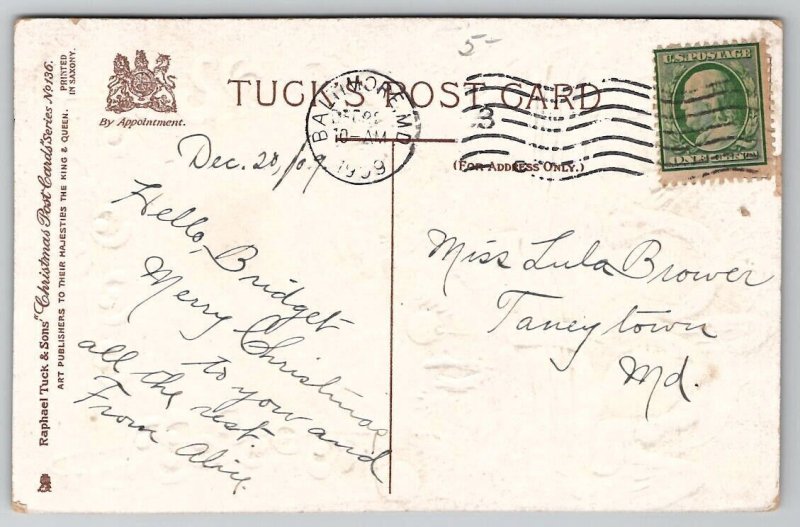 5-
U.S. POSTAGE
ONE CENT
TUCK'S POST CARD
By Appointment.
BALTIMORE, MD
10-AM
1909
3
(FOR ADDRESS ONLY.)
Raphael Tuck & Sons' "Christmas Post Cards" Series No 136.
ART PUBLISHERS TO THEIR MAJESTIES THE KING & QUEEN.
PRINTED
IN SAXONY.
Dec. 28, 09
Hello, Bridget
Merry Christmas
to you and
all the rest.
From Alice.
Miss Lula Brower
Taneytown
Md.